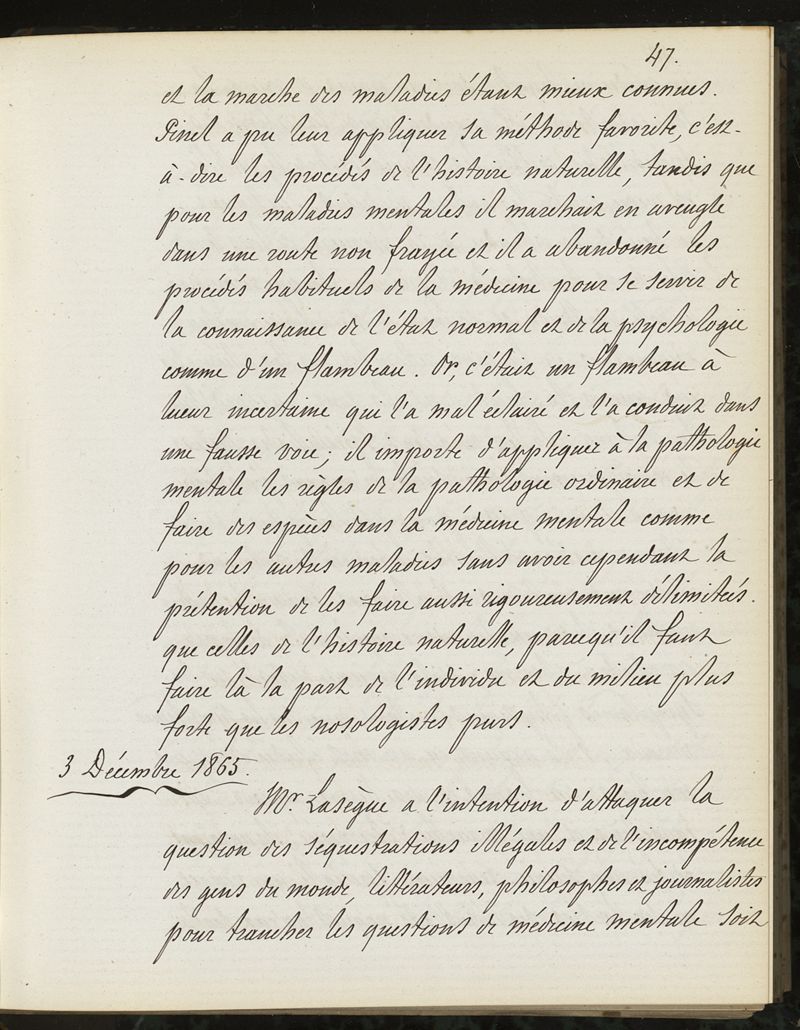 47.
et la marche des maladies étant mieux connues.
Pinel a pu leur appliquer sa méthode favorite, c'est-
à-dire les procédés de l'histoire naturelle, tandis que
pour les maladies mentales il marchait en aveugle
dans une route non frayée et il a abandonné les
procédés habituels de la médecine pour se servir de
la connaissance de l'état normal et de la psychologie
comme d'un flambeau. Or, c'était un flambeau à
lueur incertaine qui l'a mal éclairé et l'a conduit dans
une fausse voie; il importe d'appliquer à la pathologie
mentale les règles de la pathologie ordinaire et de
faire des espèces dans la médecine mentale comme
pour les autres maladies sans avoir cependant la
prétention de les faire aussi rigoureusement délimitées.
que celles de l'histoire naturelle, parcequ'il faut
faire là la part de l'individu et du milieu plus
forte que les nosologistes purs.
3 Décembre 1865.
Mr. Lasègue a l'intention d'attaquer la
question des séquestrations illégales et de l'incompétence
des gens du monde, littérateurs, philosophes et journalistes
pour trancher les questions de médecine mentale soit